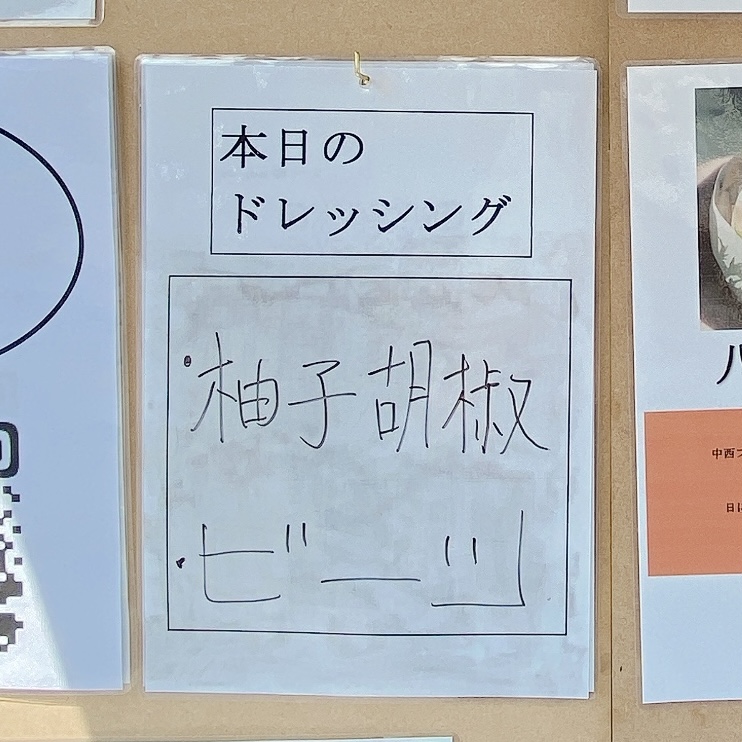 本日の
ドレッシング
・柚子胡椒
・ビーツ
中西
日